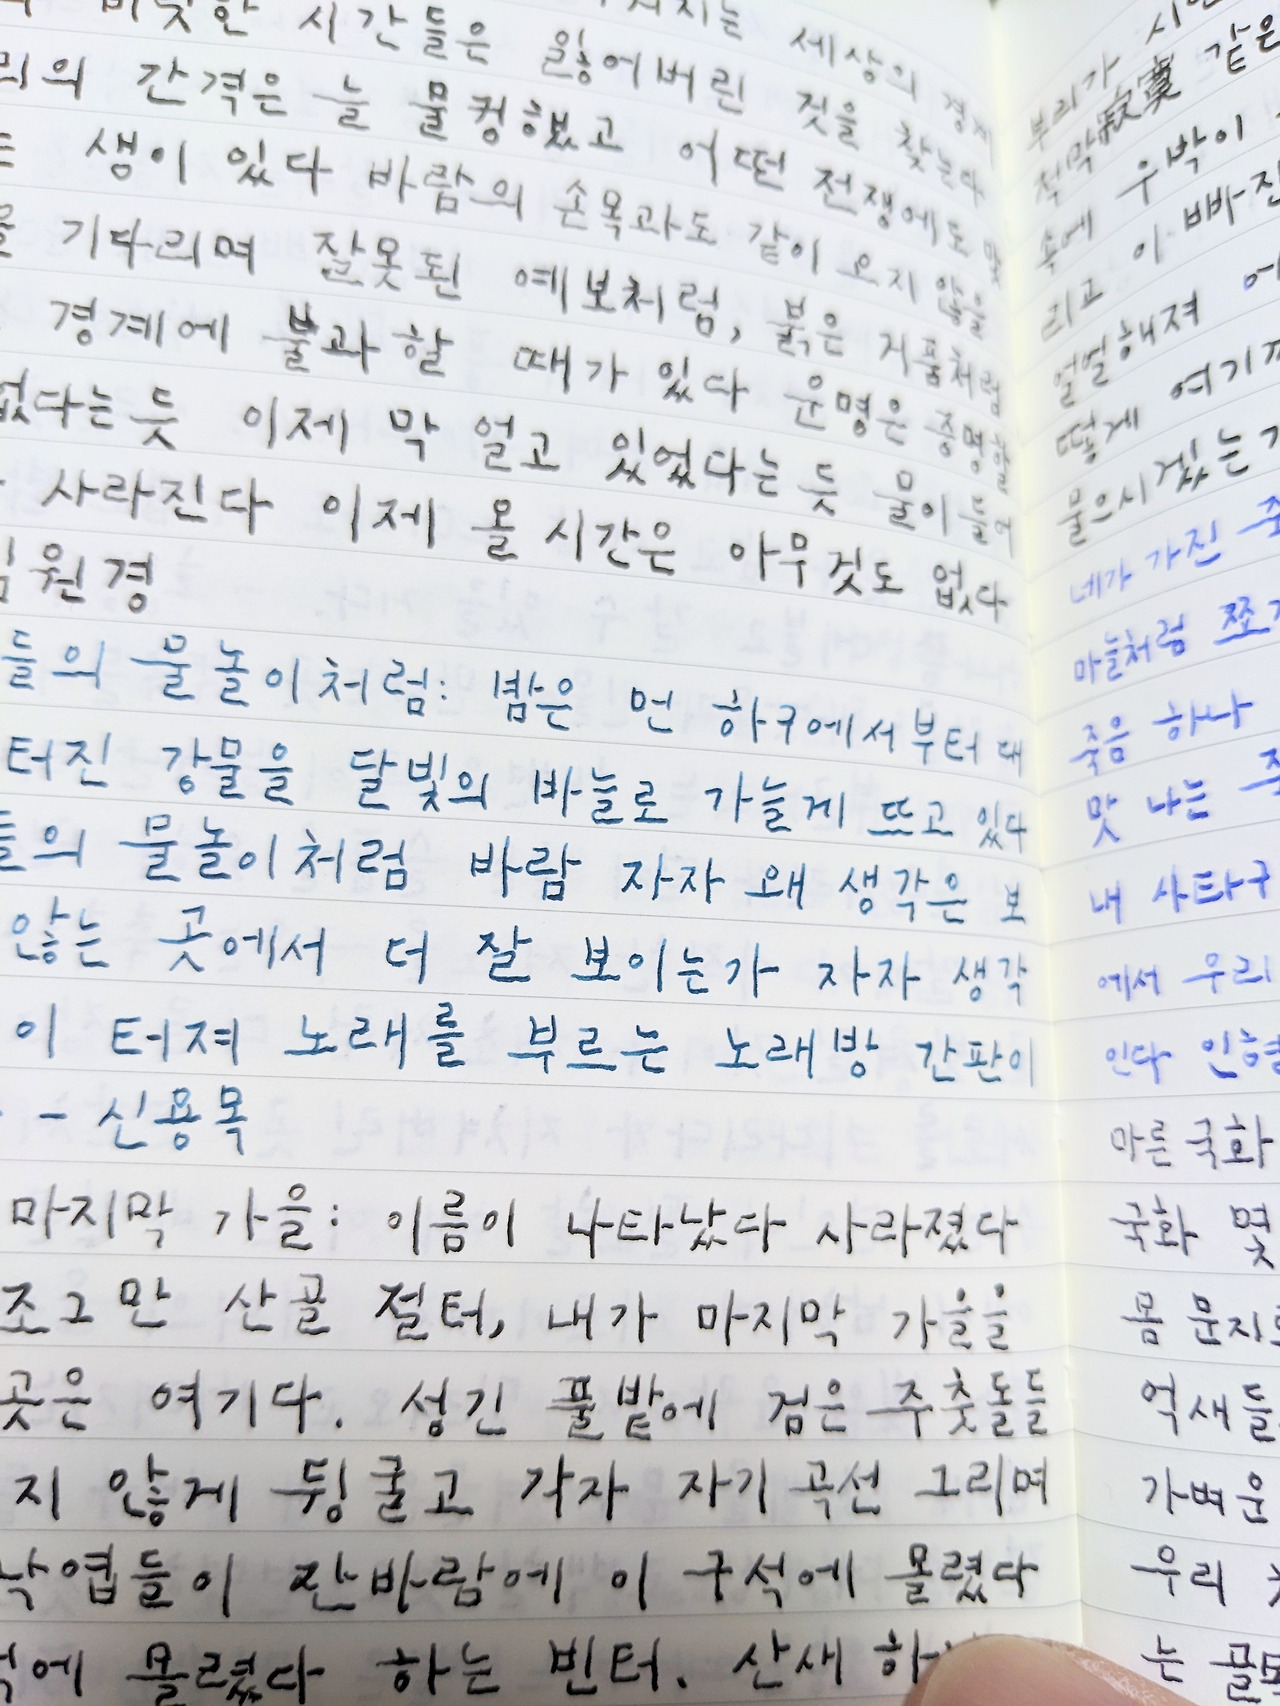 비슷한 시간들은 잃어버린 짓을 찾는다
리의 간격은 늘 물컹했고 어떤 전쟁에도
생이 있다 바람의 손목과도 같이 오지 않을
를 기다리며 잘못된 예보처럼, 붉은 거품처럼
경계에 불과할 때가 있다 운명은 증명할
없다는 듯 이제 막 얼고 있었다는 듯 물이 들어
사라진다 이제 올 시간은 아무것도 없다
원경
들의 물놀이처럼: 밤은 먼 하구에서부터 대
터진 강물을 달빛의 바늘로 가늘게 뜨고 있다
들의 물놀이처럼 바람 자자 왜 생각은 보
않는 곳에서 더 잘 보이는가 자자 생각
이 터져 노래를 부르는 노래방 간판이
- 신용목
마지막 가을: 이름이 나타났다 사라졌다
조그만 산골 절터, 내가 마지막 가을을
곳은 여기다. 성긴 풀밭에 검은 주춧돌들
지 않게 뒹굴고 각자 자기 곡선 그리며
낙엽들이 잔바람에 이 구석에 몰렸다
석에 몰렸다 하는 빈터. 산새
부리가
적막寂寞 같은
속에 우박이
리고 이 빠진
얼얼해져
떻게 여기까
물으시겠는가
네가 가진
마늘처럼 쪼개
죽음 하나
맛 나는
내 사타구
에서 우리
인다 인형
마른 국화
국화 몇
몸 문지르
억새들
가벼운
우리
는 골목